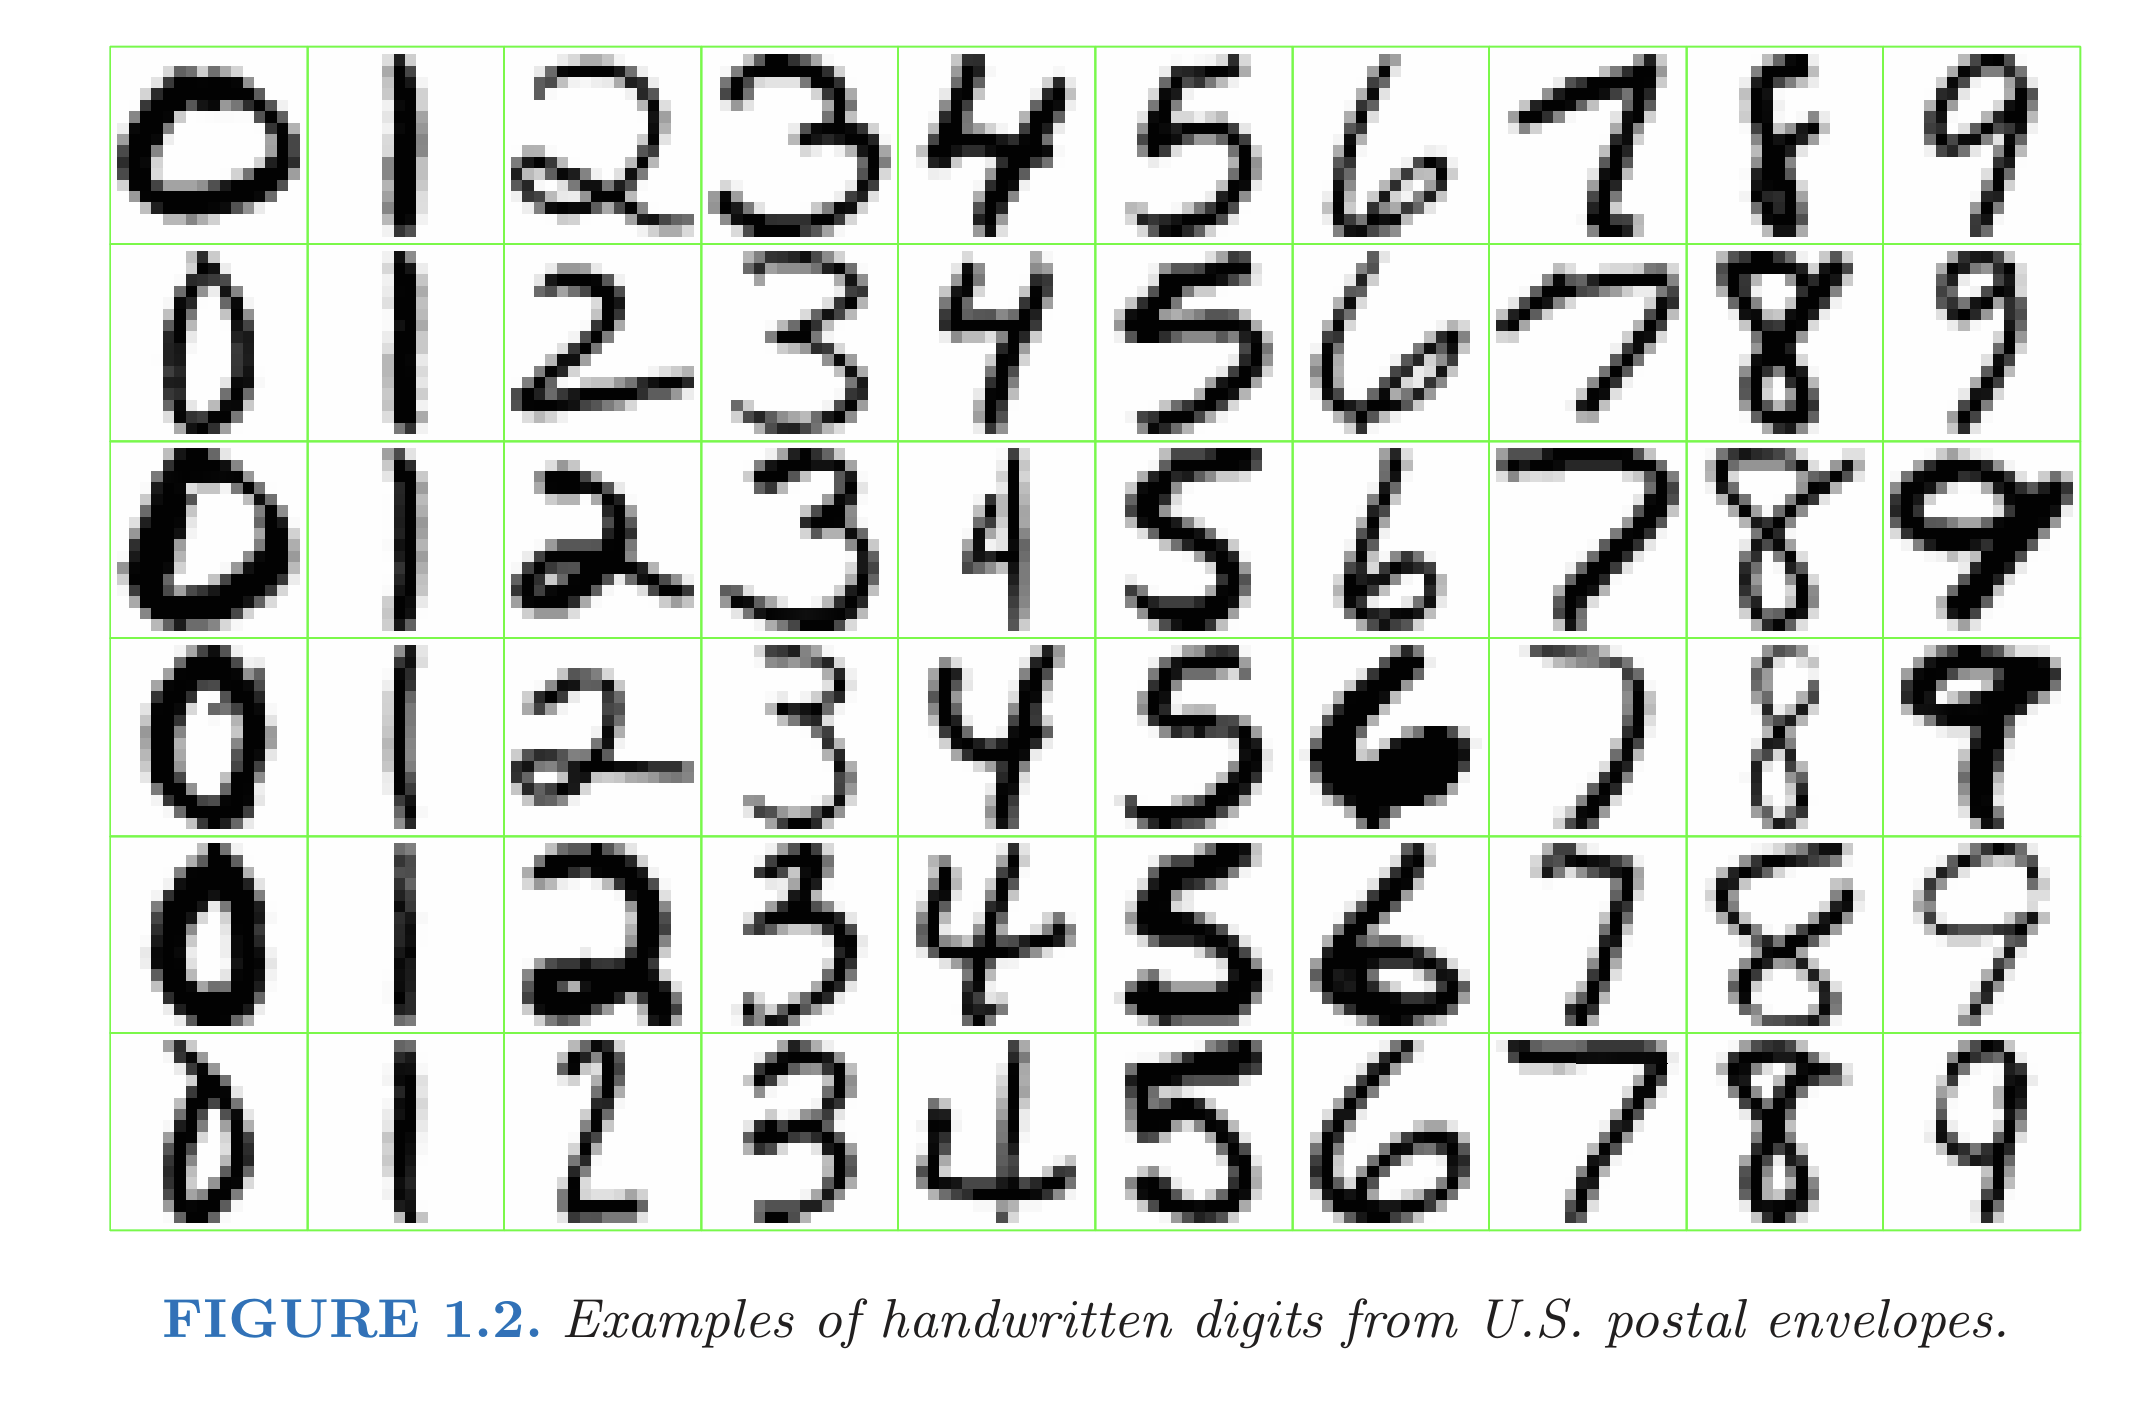 0 1 2 3 4 5 6 7 8 9
0 1 2 3 4 5 6 7 8 9
0 1 2 3 4 5 6 7 8 9
0 1 2 3 4 5 6 7 8 9
0 1 2 3 4 5 6 7 8 9
0 1 2 3 4 5 6 7 8 9
FIGURE 1.2. Examples of handwritten digits from U.S. postal envelopes.